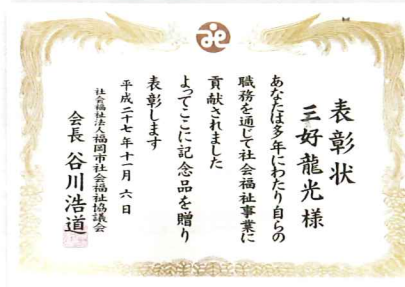 表彰状
三好龍光様
あなたは多年にわたり自らの
職務を通じて社会福祉事業に
貢献されました
よってここに記念品を贈り
表彰します
平成二十七年十一月六日
社会福祉法人福岡市社会福祉協議会
会長 谷川浩道